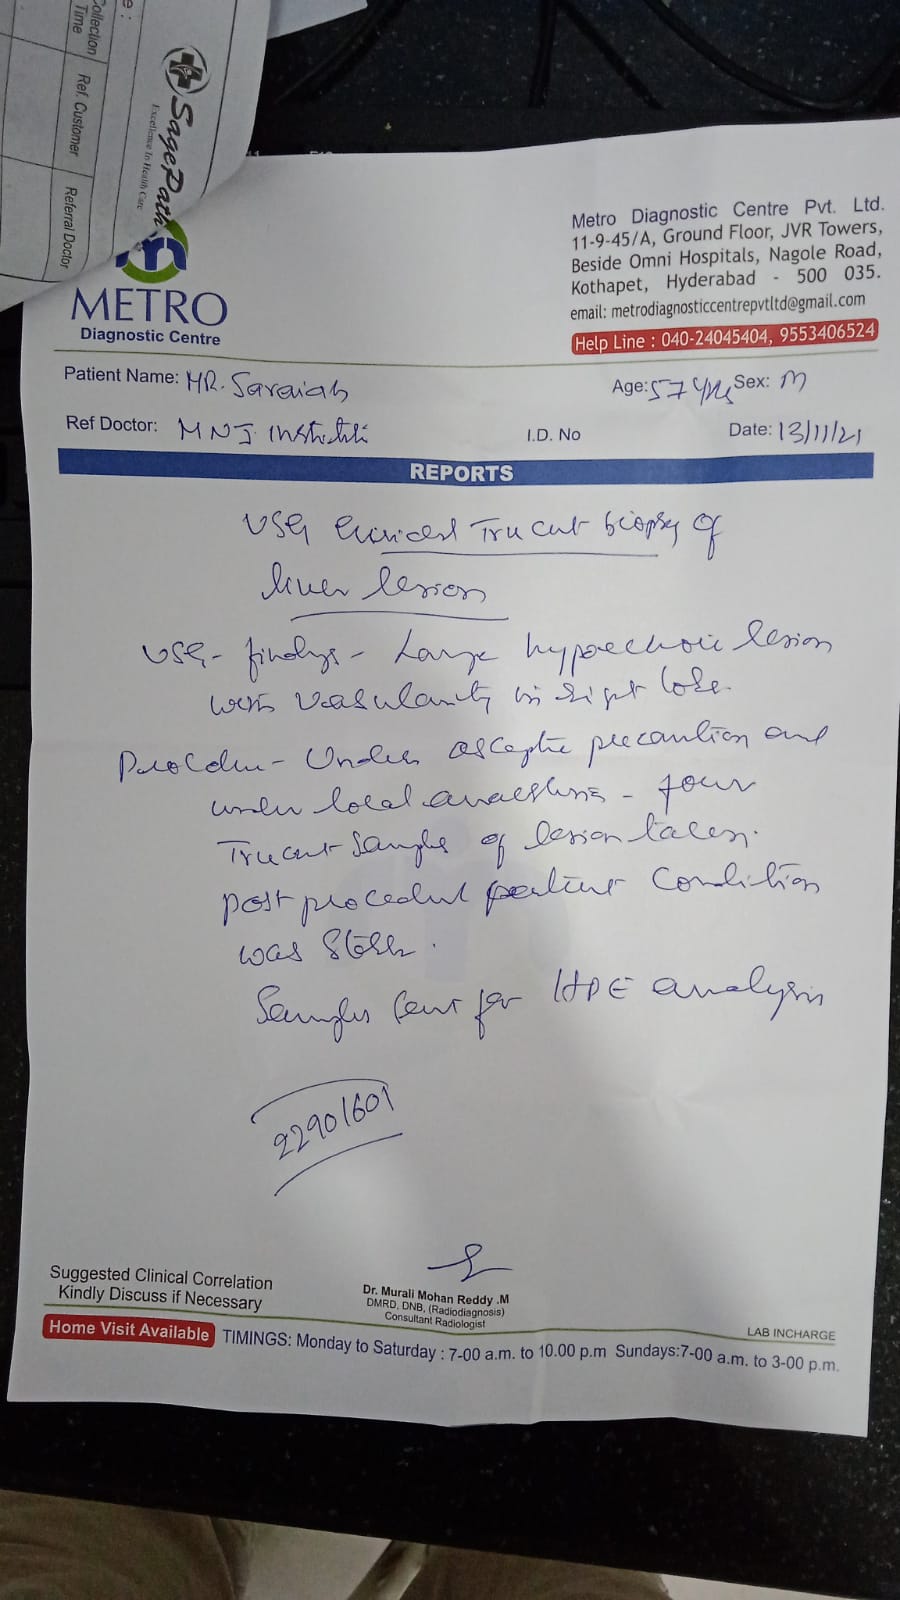 e :
Collection
Time
Ref. Customer
Referral Doctor
SagePath
Excellence In Health Care
METRO
Diagnostic Centre
Metro Diagnostic Centre Pvt. Ltd.
11-9-45/A, Ground Floor, JVR Towers,
Beside Omni Hospitals, Nagole Road,
Kothapet, Hyderabad - 500 035.
email: metrodiagnosticcentrepvtltd@gmail.com
Help Line : 040-24045404, 9553406524
Patient Name: MR. Saraiah Age: 57 yrs Sex: M
Ref Doctor: MNJ I.D. No Date: 13/11/21
REPORTS
USG Guided Trucut biopsy of
liver lesion
USG - findings - Large hypoechoic lesion
with vascularity in right lobe.
Procedure - Under aseptic precaution and
under local anaesthesia - four
Trucut samples of lesion taken.
post procedure patient condition
was stable.
Samples sent for HPE analysis
22901601
Suggested Clinical Correlation
Kindly Discuss if Necessary
Dr. Murali Mohan Reddy .M
DMRD, DNB, (Radiodiagnosis)
Consultant Radiologist
LAB INCHARGE
Home Visit Available TIMINGS: Monday to Saturday : 7-00 a.m. to 10.00 p.m Sundays:7-00 a.m. to 3-00 p.m.